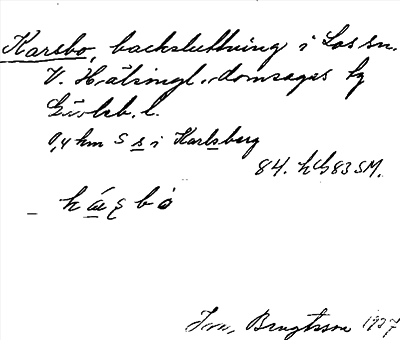 Karsbo, backsluttning i Los sn.
V. Hälsingl. domsagas tg
Gävleb. l.
0,4 km S s i Karlsberg
84. h 83 SM.
Bengtsson 1927